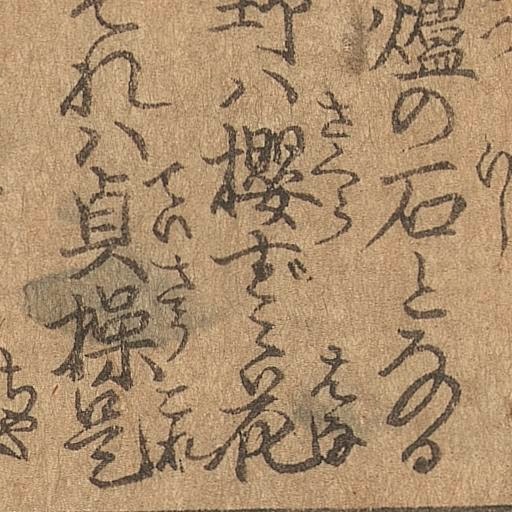 いし
爐の石となる
さくら はな
野ハ櫻 花
ていさう これ
それハ貞操是
ちや